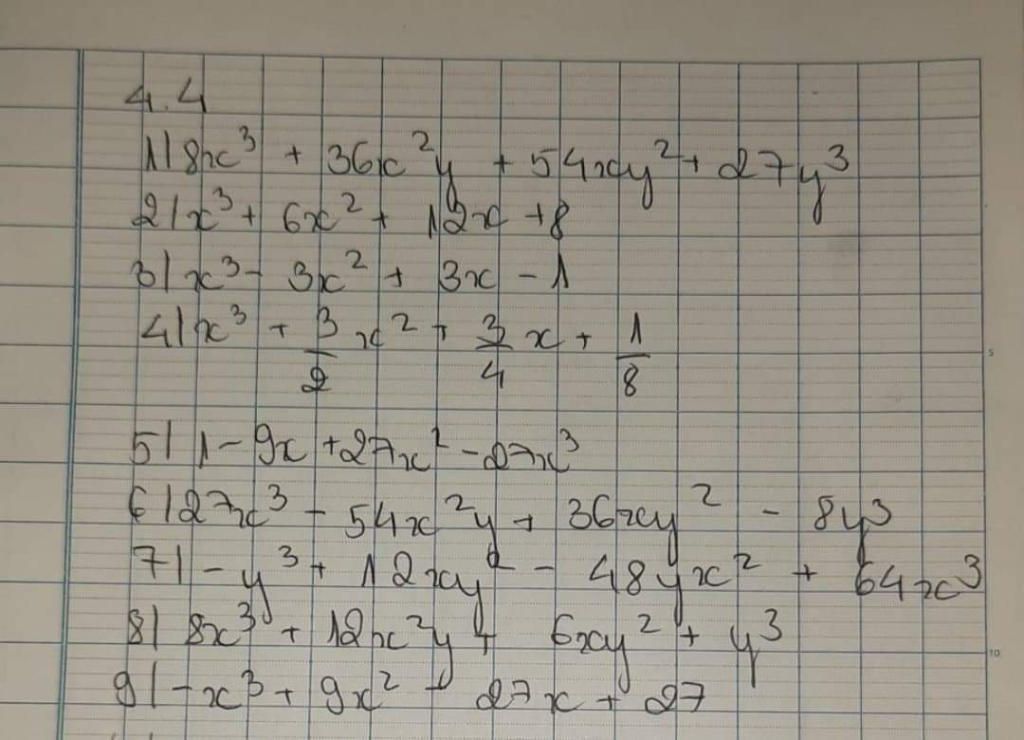 4.4
1| 8x³ + 36x²y + 54xy² + 27y³
2| x³ + 6x² + 12x + 8
3| x³ - 3x² + 3x - 1
4| x³ + 3/2 x² + 3/4 x + 1/8
5| 1 - 9x + 27x² - 27x³
6| 27x³ - 54x²y + 36xy² - 8y³
7| - y³ + 12xy² - 48yx² + 64x³
8| 8x³ + 12x²y + 6xy² + y³
9| - x³ + 9x² - 27x + 27
5
10